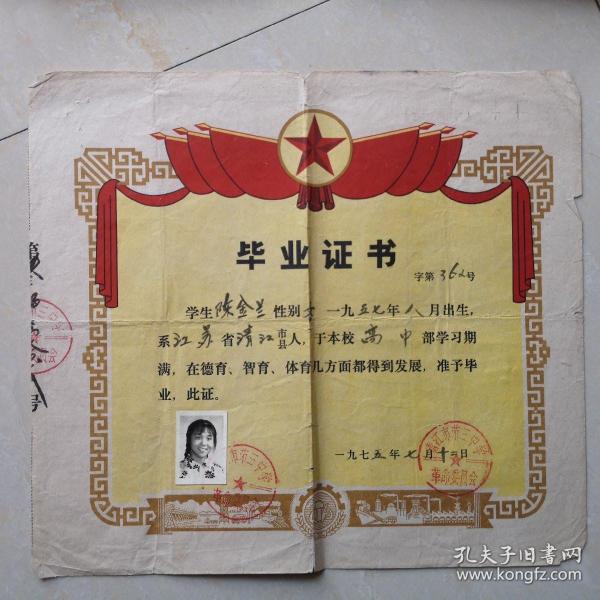 毕业证书
字第362号
学生陈金兰性别女一九五七年八月出生，
系江苏省清江市县人，于本校高中部学习期
满，在德育、智育、体育几方面都得到发展，准予毕
业，此证。
一九七五年七月十二日
清江市第三中学
革命委员会
市第三中学
革命
孔夫子旧书网
www.kongfz.com